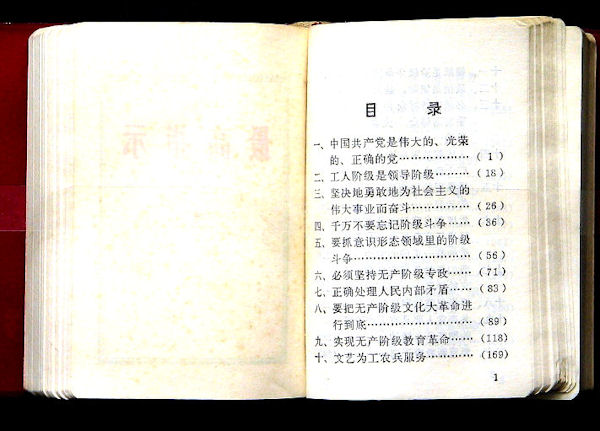 目 录
一、中国共产党是伟大的、光荣
的、正确的党………………( 1 )
二、工人阶级是领导阶级………( 18 )
三、坚决地勇敢地为社会主义的
伟大事业而奋斗……………( 26 )
四、千万不要忘记阶级斗争……( 36 )
五、要抓意识形态领域里的阶级
斗争…………………………( 56 )
六、必须坚持无产阶级专政……( 71 )
七、正确处理人民内部矛盾……( 83 )
八、要把无产阶级文化大革命进
行到底………………………( 89 )
九、实现无产阶级教育革命……(118)
十、文艺为工农兵服务…………(169)
1